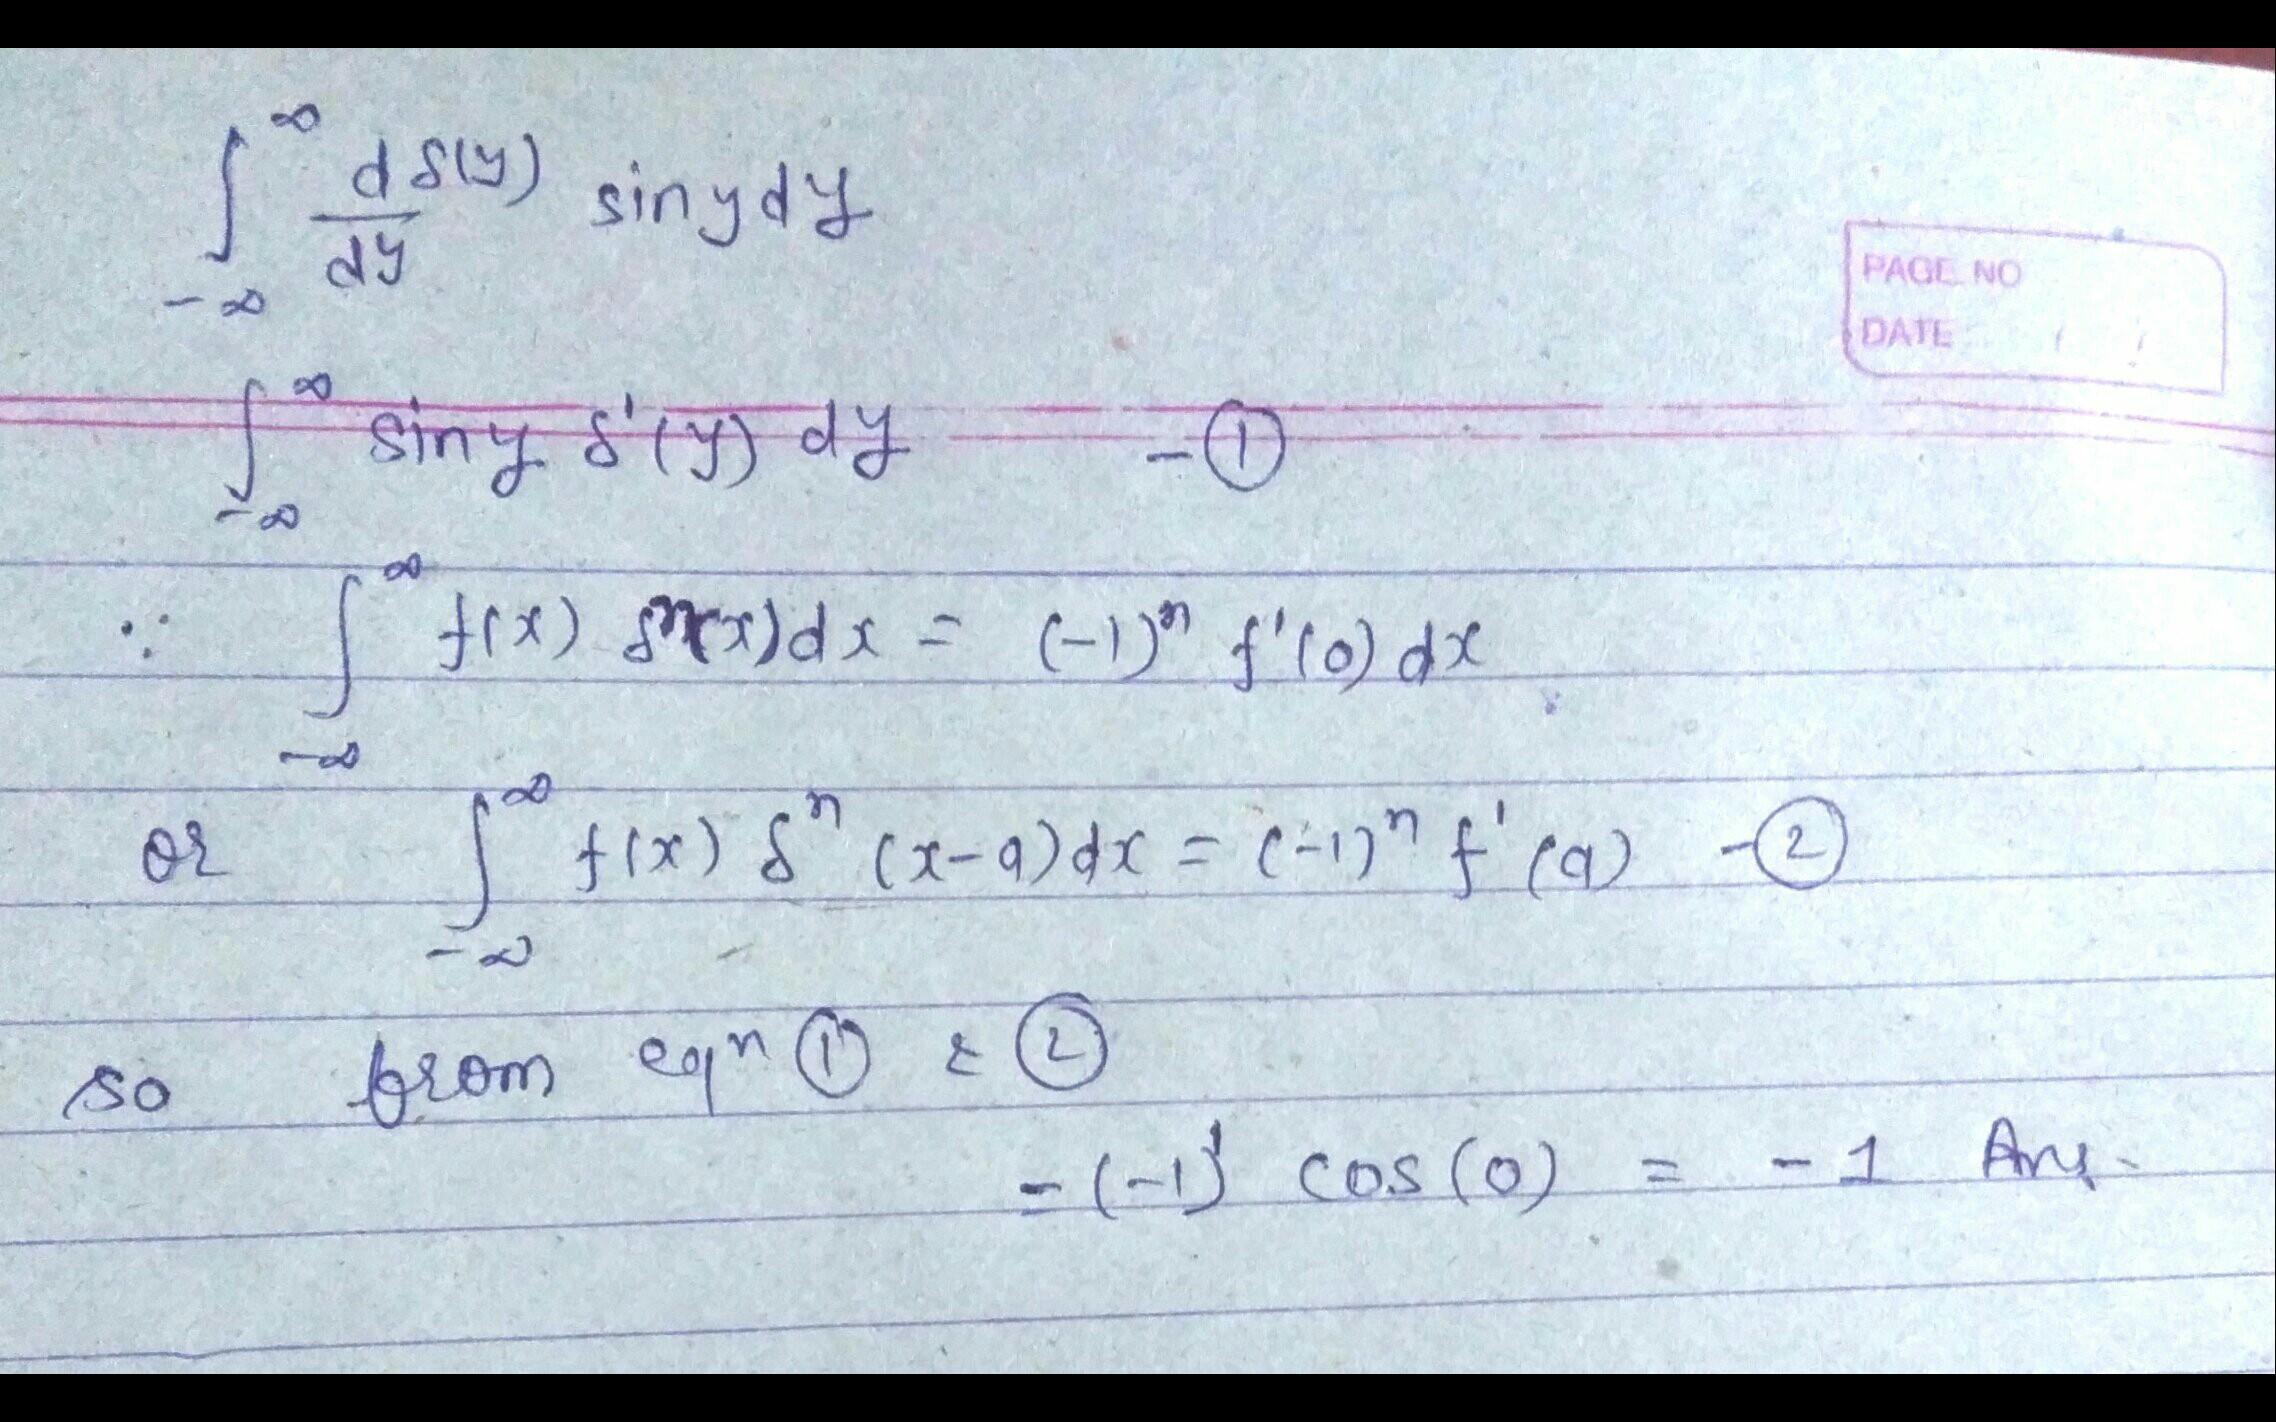 ∫_{-∞}^{∞} dδ(y)/dy sin y dy
PAGE NO
DATE / /
∫_{-∞}^{∞} sin y δ'(y) dy - ①
∵ ∫_{-∞}^{∞} f(x) δⁿ(x) dx = (-1)ⁿ f'(0) dx
or ∫_{-∞}^{∞} f(x) δⁿ (x-a) dx = (-1)ⁿ f'(a) - ②
so from eqⁿ ① & ②
= (-1)¹ cos(0) = -1 Ans.